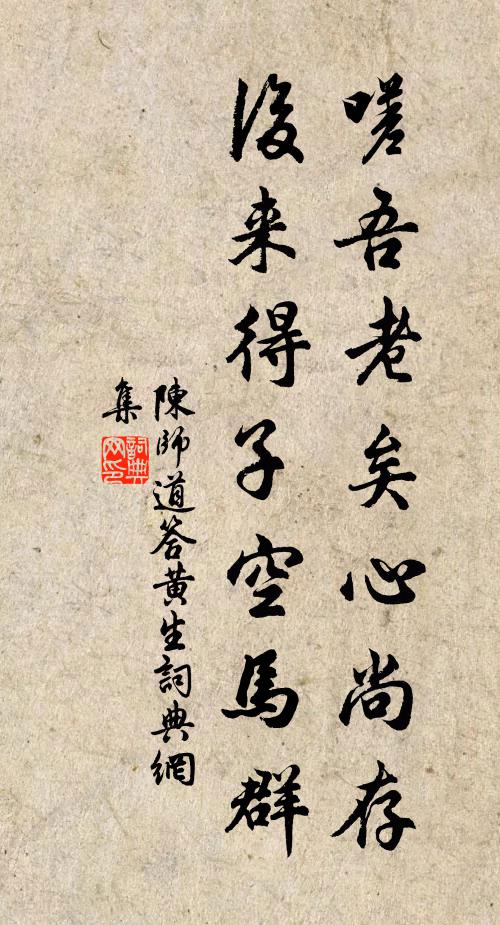 嗟吾老矣心尚存
後来得子空馬群
陳師道答黄生詞典網
集
詞典
网印